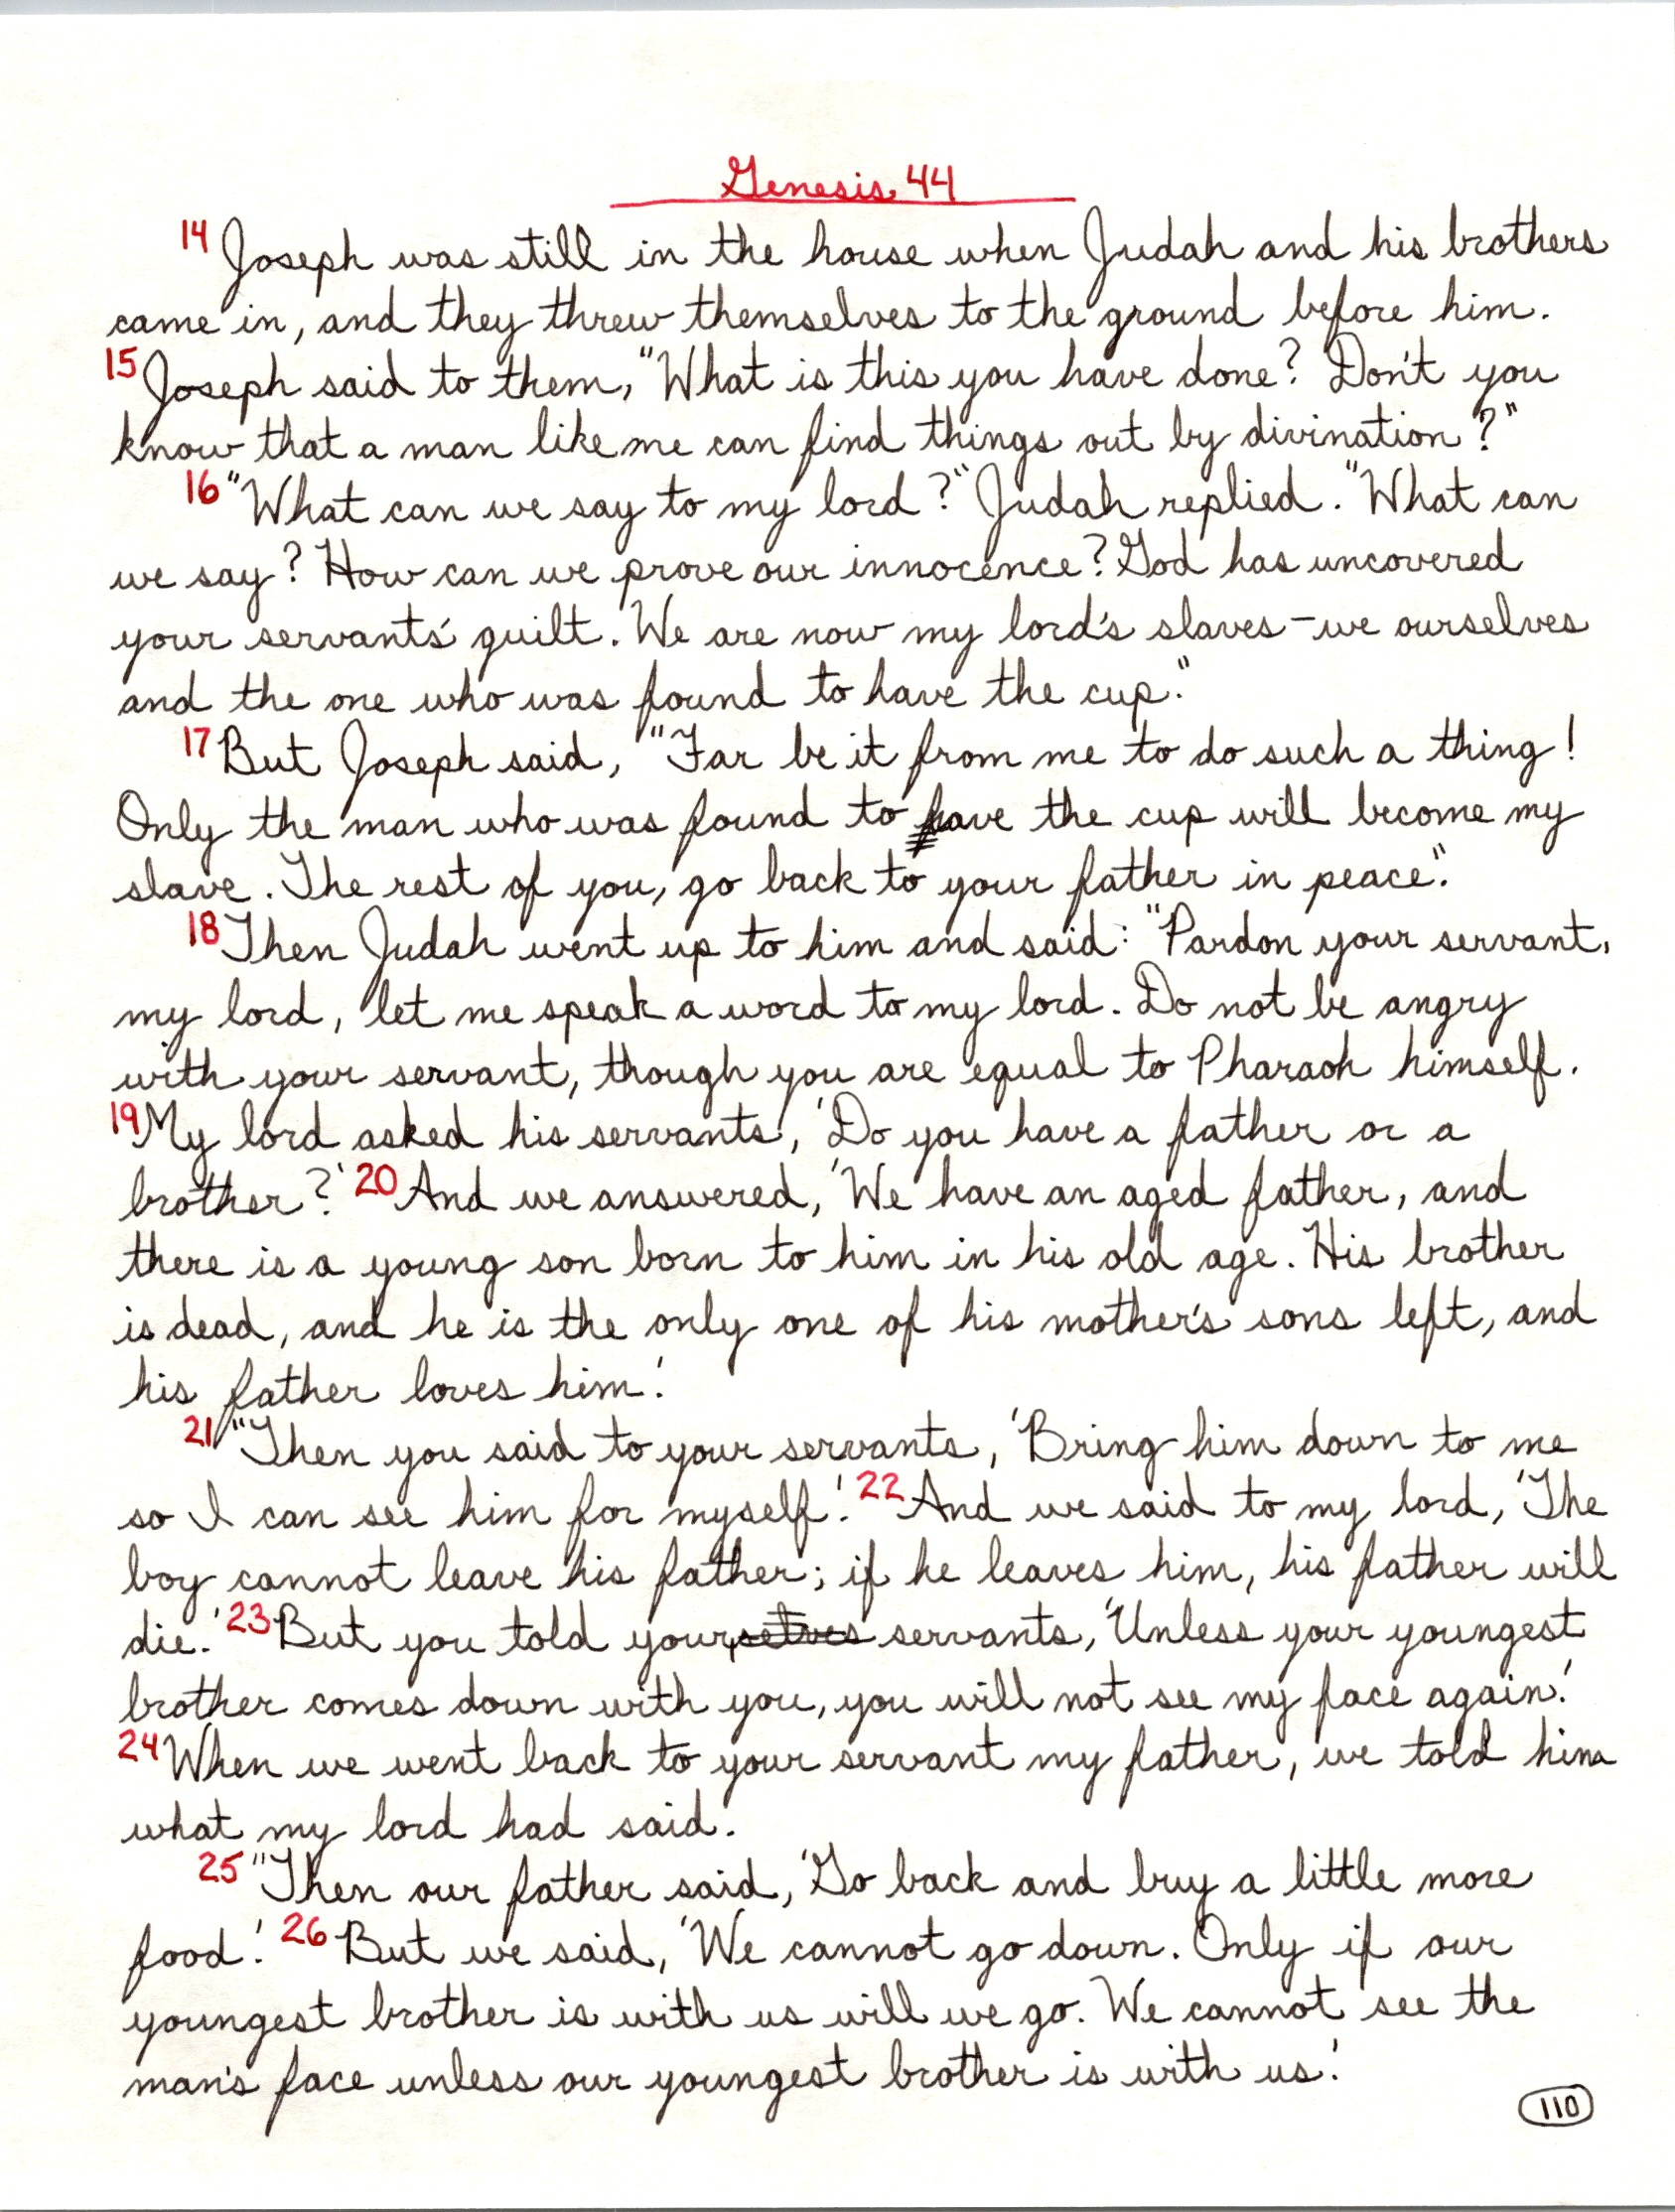 Genesis 44
14 Joseph was still in the house when Judah and his brothers
came in, and they threw themselves to the ground before him.
15 Joseph said to them, "What is this you have done? Don't you
know that a man like me can find things out by divination?"
16 "What can we say to my lord?" Judah replied. "What can
we say? How can we prove our innocence? God has uncovered
your servants' guilt. We are now my lord's slaves - we ourselves
and the one who was found to have the cup."
17 But Joseph said, "Far be it from me to do such a thing!
Only the man who was found to have the cup will become my
slave. The rest of you, go back to your father in peace."
18 Then Judah went up to him and said: "Pardon your servant,
my lord, let me speak a word to my lord. Do not be angry
with your servant, though you are equal to Pharaoh himself.
19 My lord asked his servants, 'Do you have a father or a
brother?' 20 And we answered, 'We have an aged father, and
there is a young son born to him in his old age. His brother
is dead, and he is the only one of his mother's sons left, and
his father loves him.'
21 "Then you said to your servants, 'Bring him down to me
so I can see him for myself.' 22 And we said to my lord, 'The
boy cannot leave his father; if he leaves him, his father will
die.' 23 But you told yourselves servants, 'Unless your youngest
brother comes down with you, you will not see my face again.'
24 When we went back to your servant my father, we told him
what my lord had said.
25 "Then our father said, 'Go back and buy a little more
food.' 26 But we said, 'We cannot go down. Only if our
youngest brother is with us will we go. We cannot see the
man's face unless our youngest brother is with us.'
110